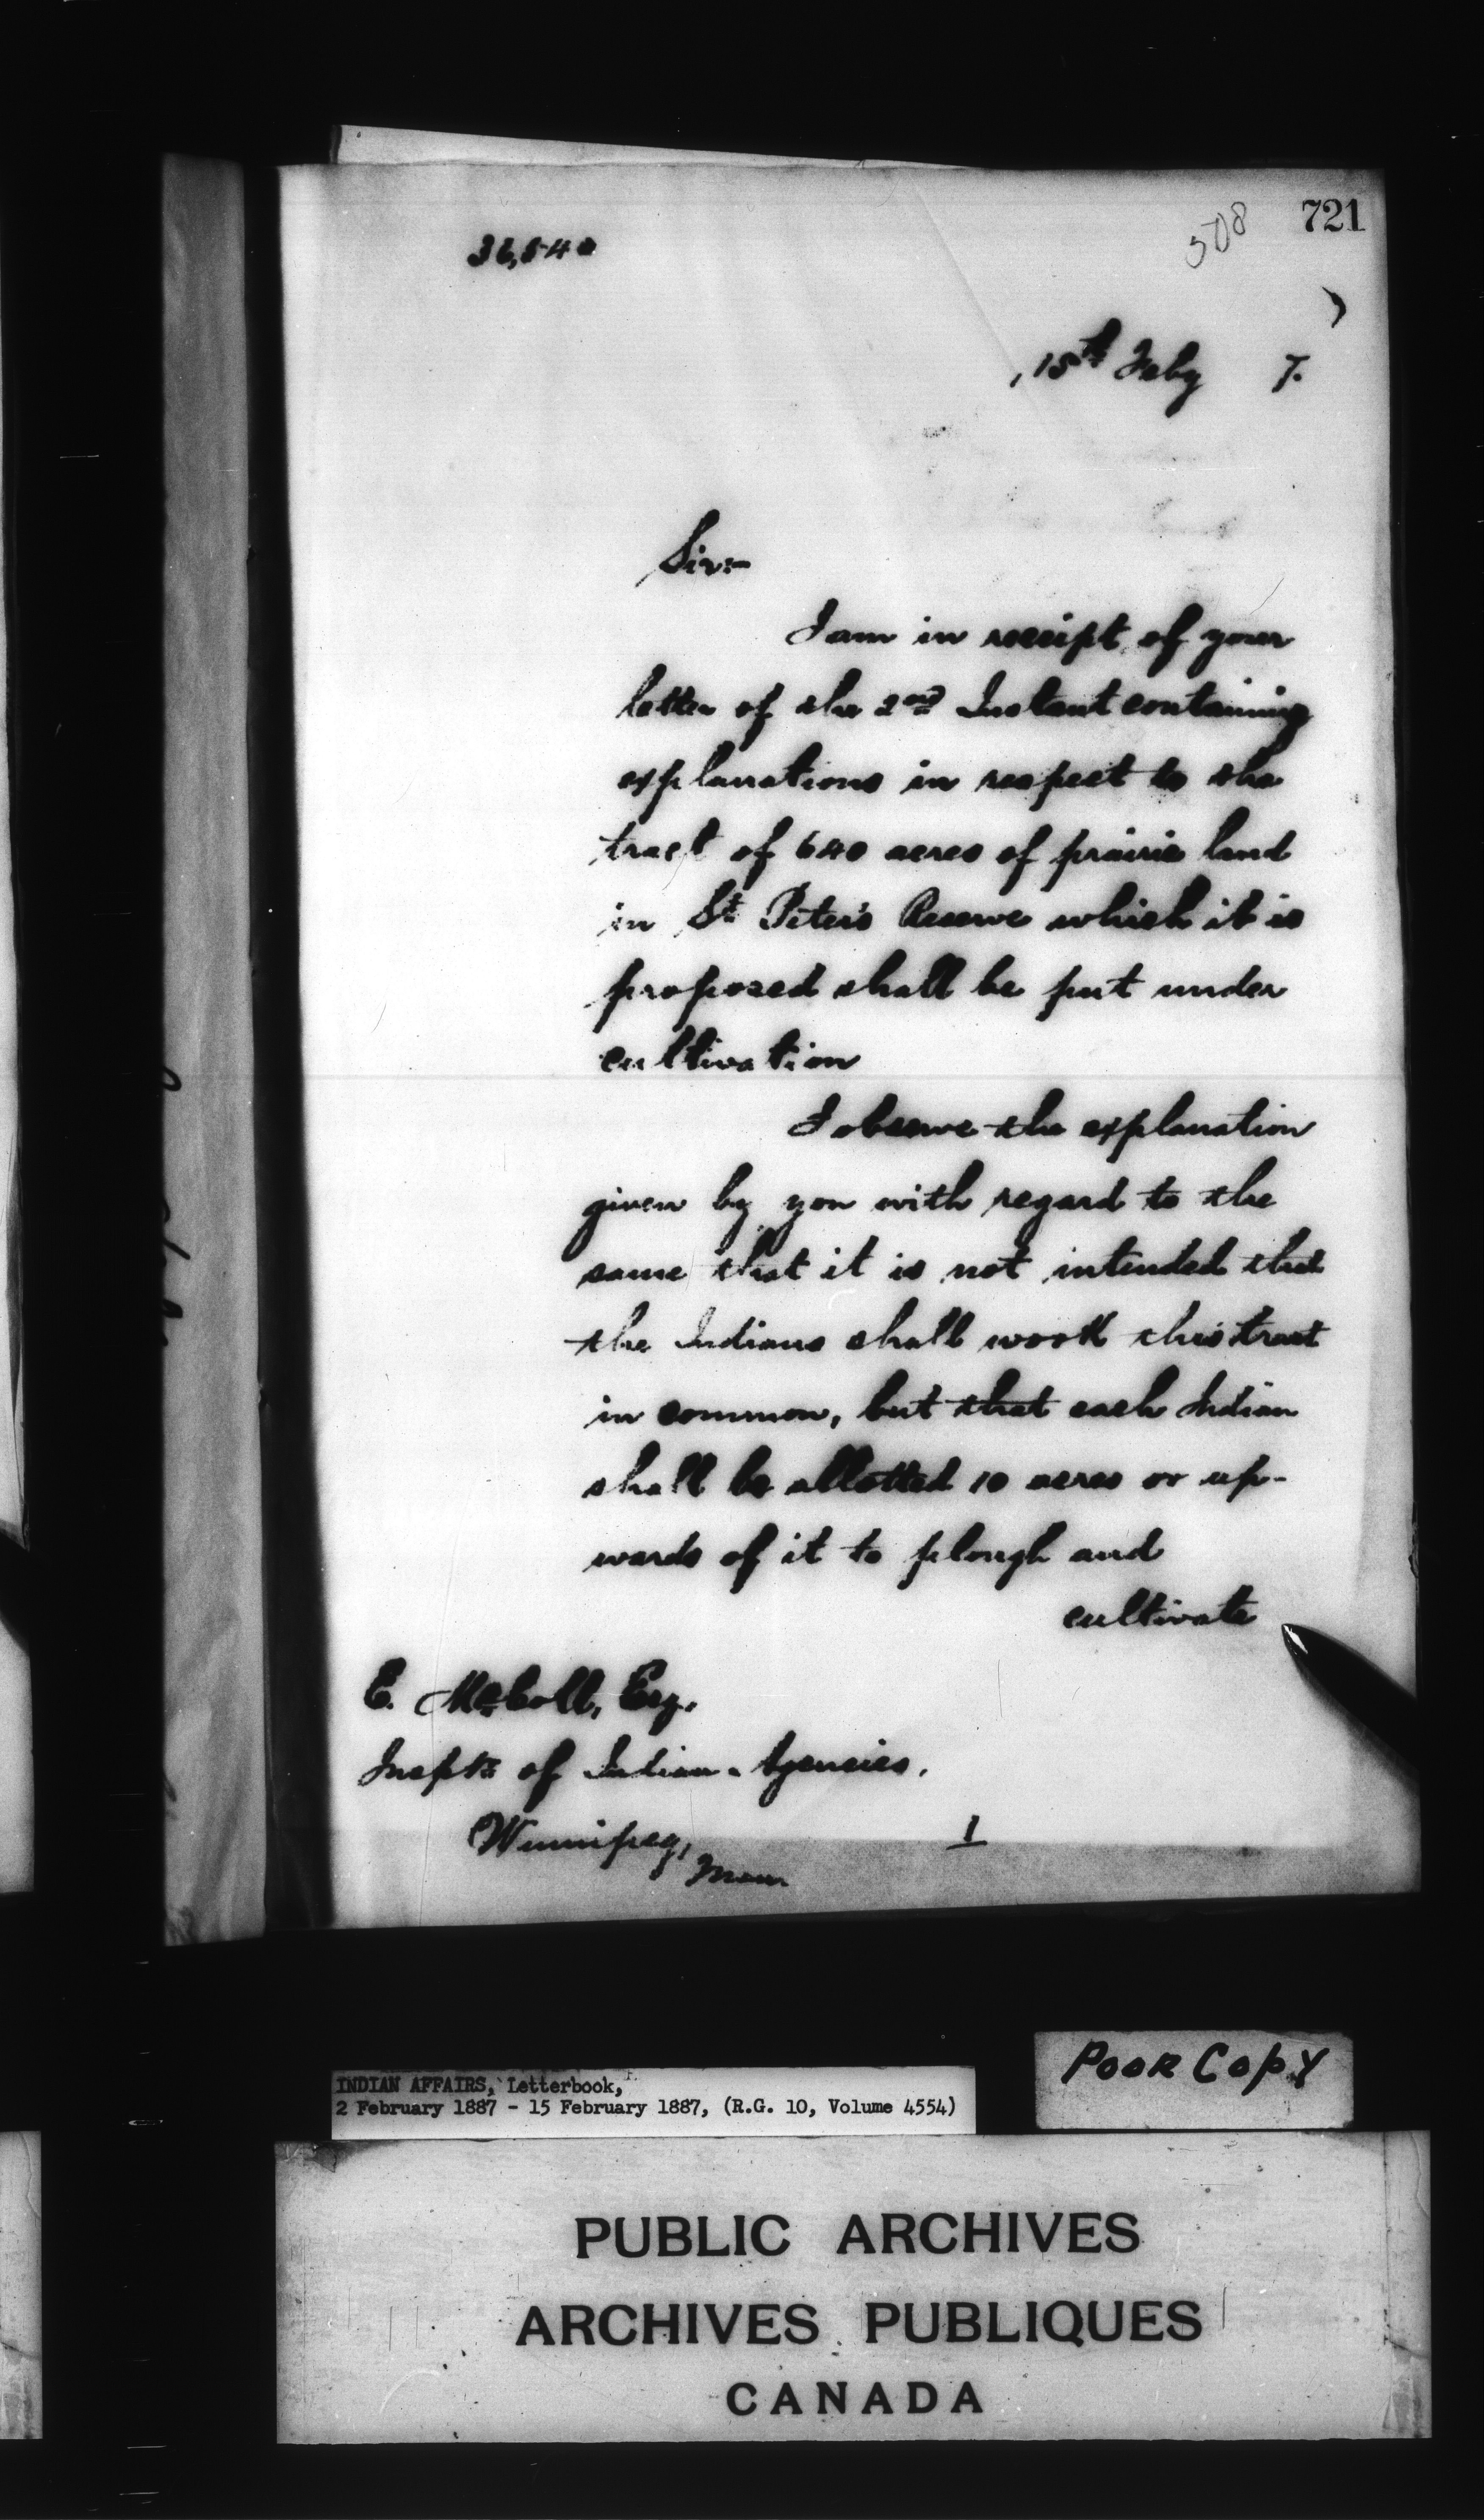 721
508
36,540
15th Feby 7.
Sir:-
I am in receipt of your
letter of the 2nd Instant containing
explanations in respect to the
tract of 640 acres of prairie land
in St Peter's Reserve which it is
proposed shall be put under
cultivation
I observe the explanation
given by you with regard to the
same that it is not intended that
the Indians shall work this tract
in common, but that each Indian
shall be allotted 10 acres or up-
wards of it to plough and
cultivate
E. McColl, Esq.
Inspt. of Indian Agencies.
Winnipeg,
Man
1
POOR COPY
INDIAN AFFAIRS, Letterbook,
2 February 1887 - 15 February 1887, (R.G. 10, Volume 4554)
PUBLIC ARCHIVES
ARCHIVES PUBLIQUES
CANADA